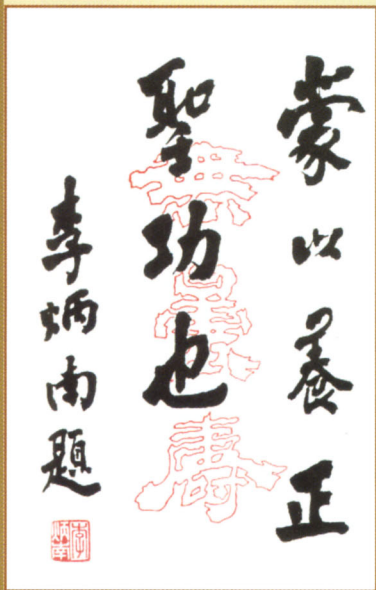 蒙以養正
聖功也
李炳南題
無量壽
李炳南